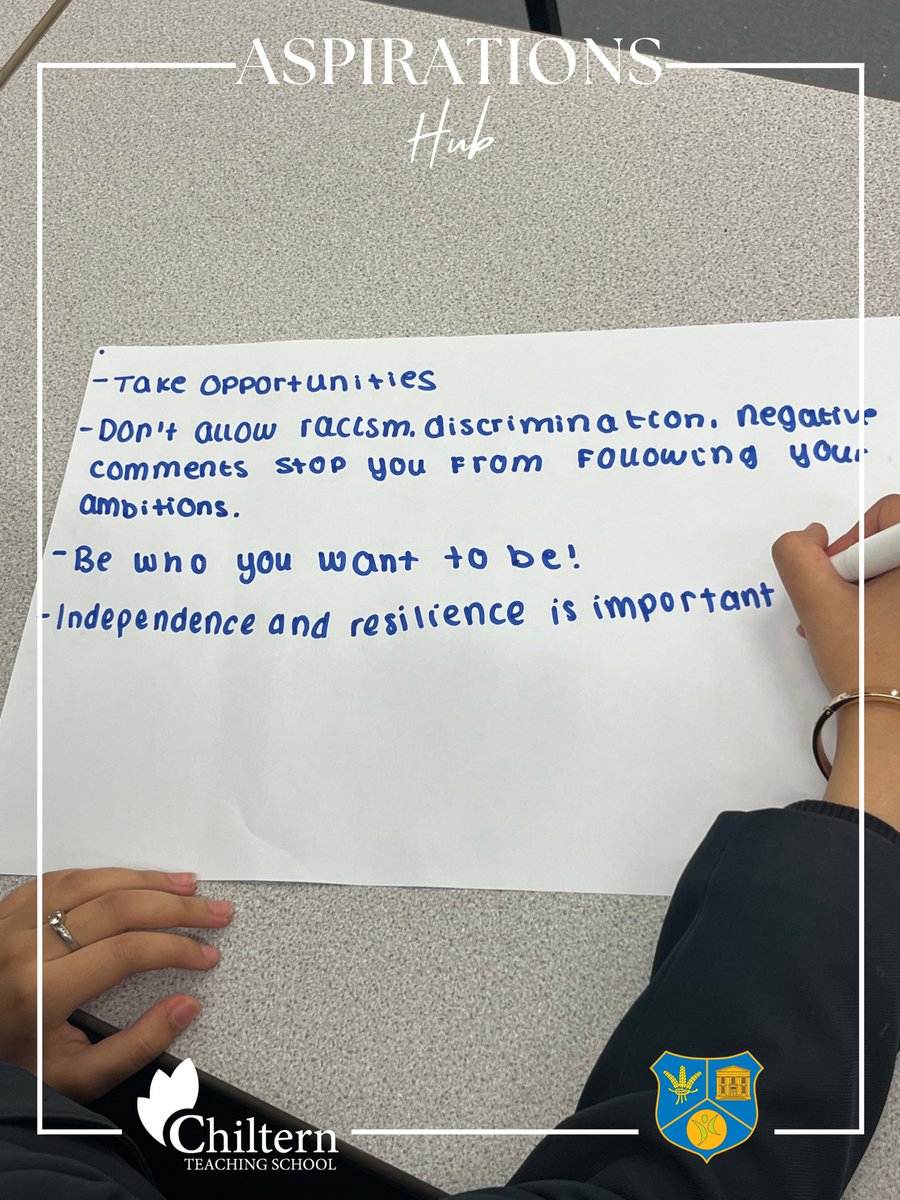 ASPIRATIONS
Hub
- Take opportunities
- Don't allow racism, discrimination, negative
comments stop you from following your
ambitions.
- Be who you want to be!
- Independence and resilience is important
Chiltern
TEACHING SCHOOL